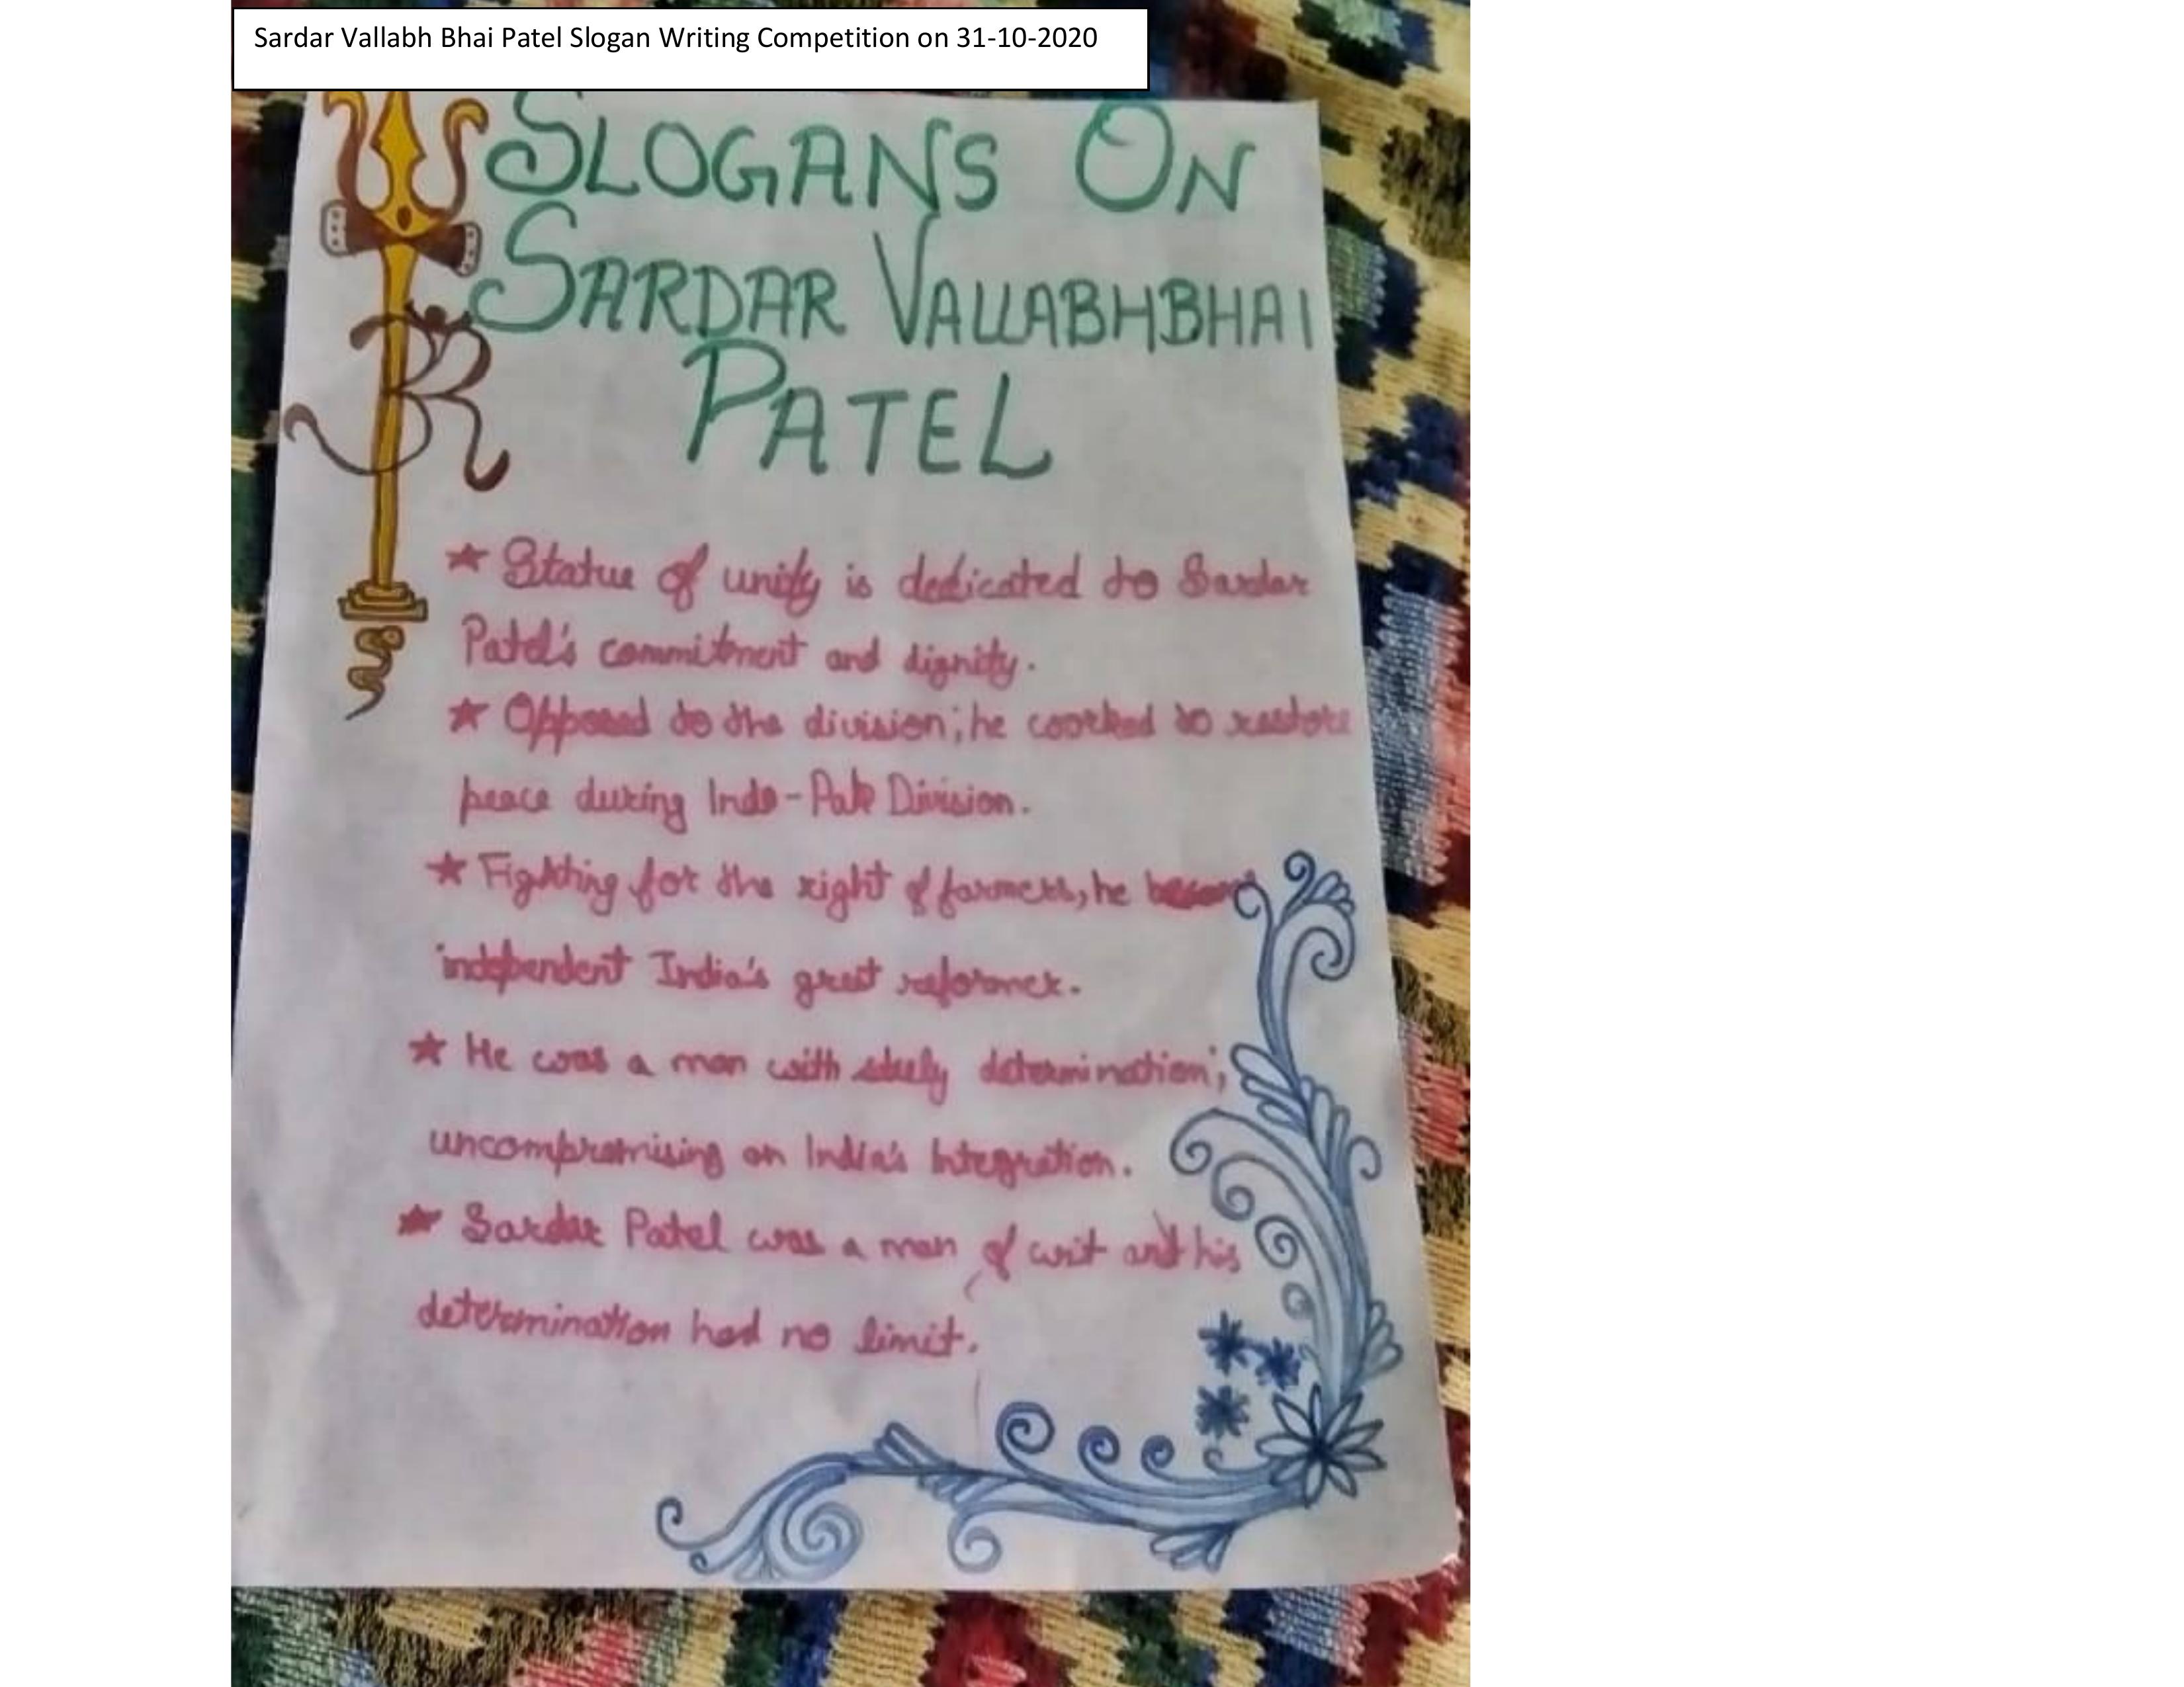 Sardar Vallabh Bhai Patel Slogan Writing Competition on 31-10-2020
SLOGANS ON
SARDAR VALLABHBHAI
PATEL
★ Statue of unity is dedicated to Sardar
Patel's commitment and dignity.
★ Opposed to the division; he worked to restore
peace during Indo-Pak Division.
★ Fighting for the right of farmers, he became
independent India's great reformer.
★ He was a man with steely determination;
uncompromising on India's Integration.
★ Sardar Patel was a man of wit and his
determination had no limit.